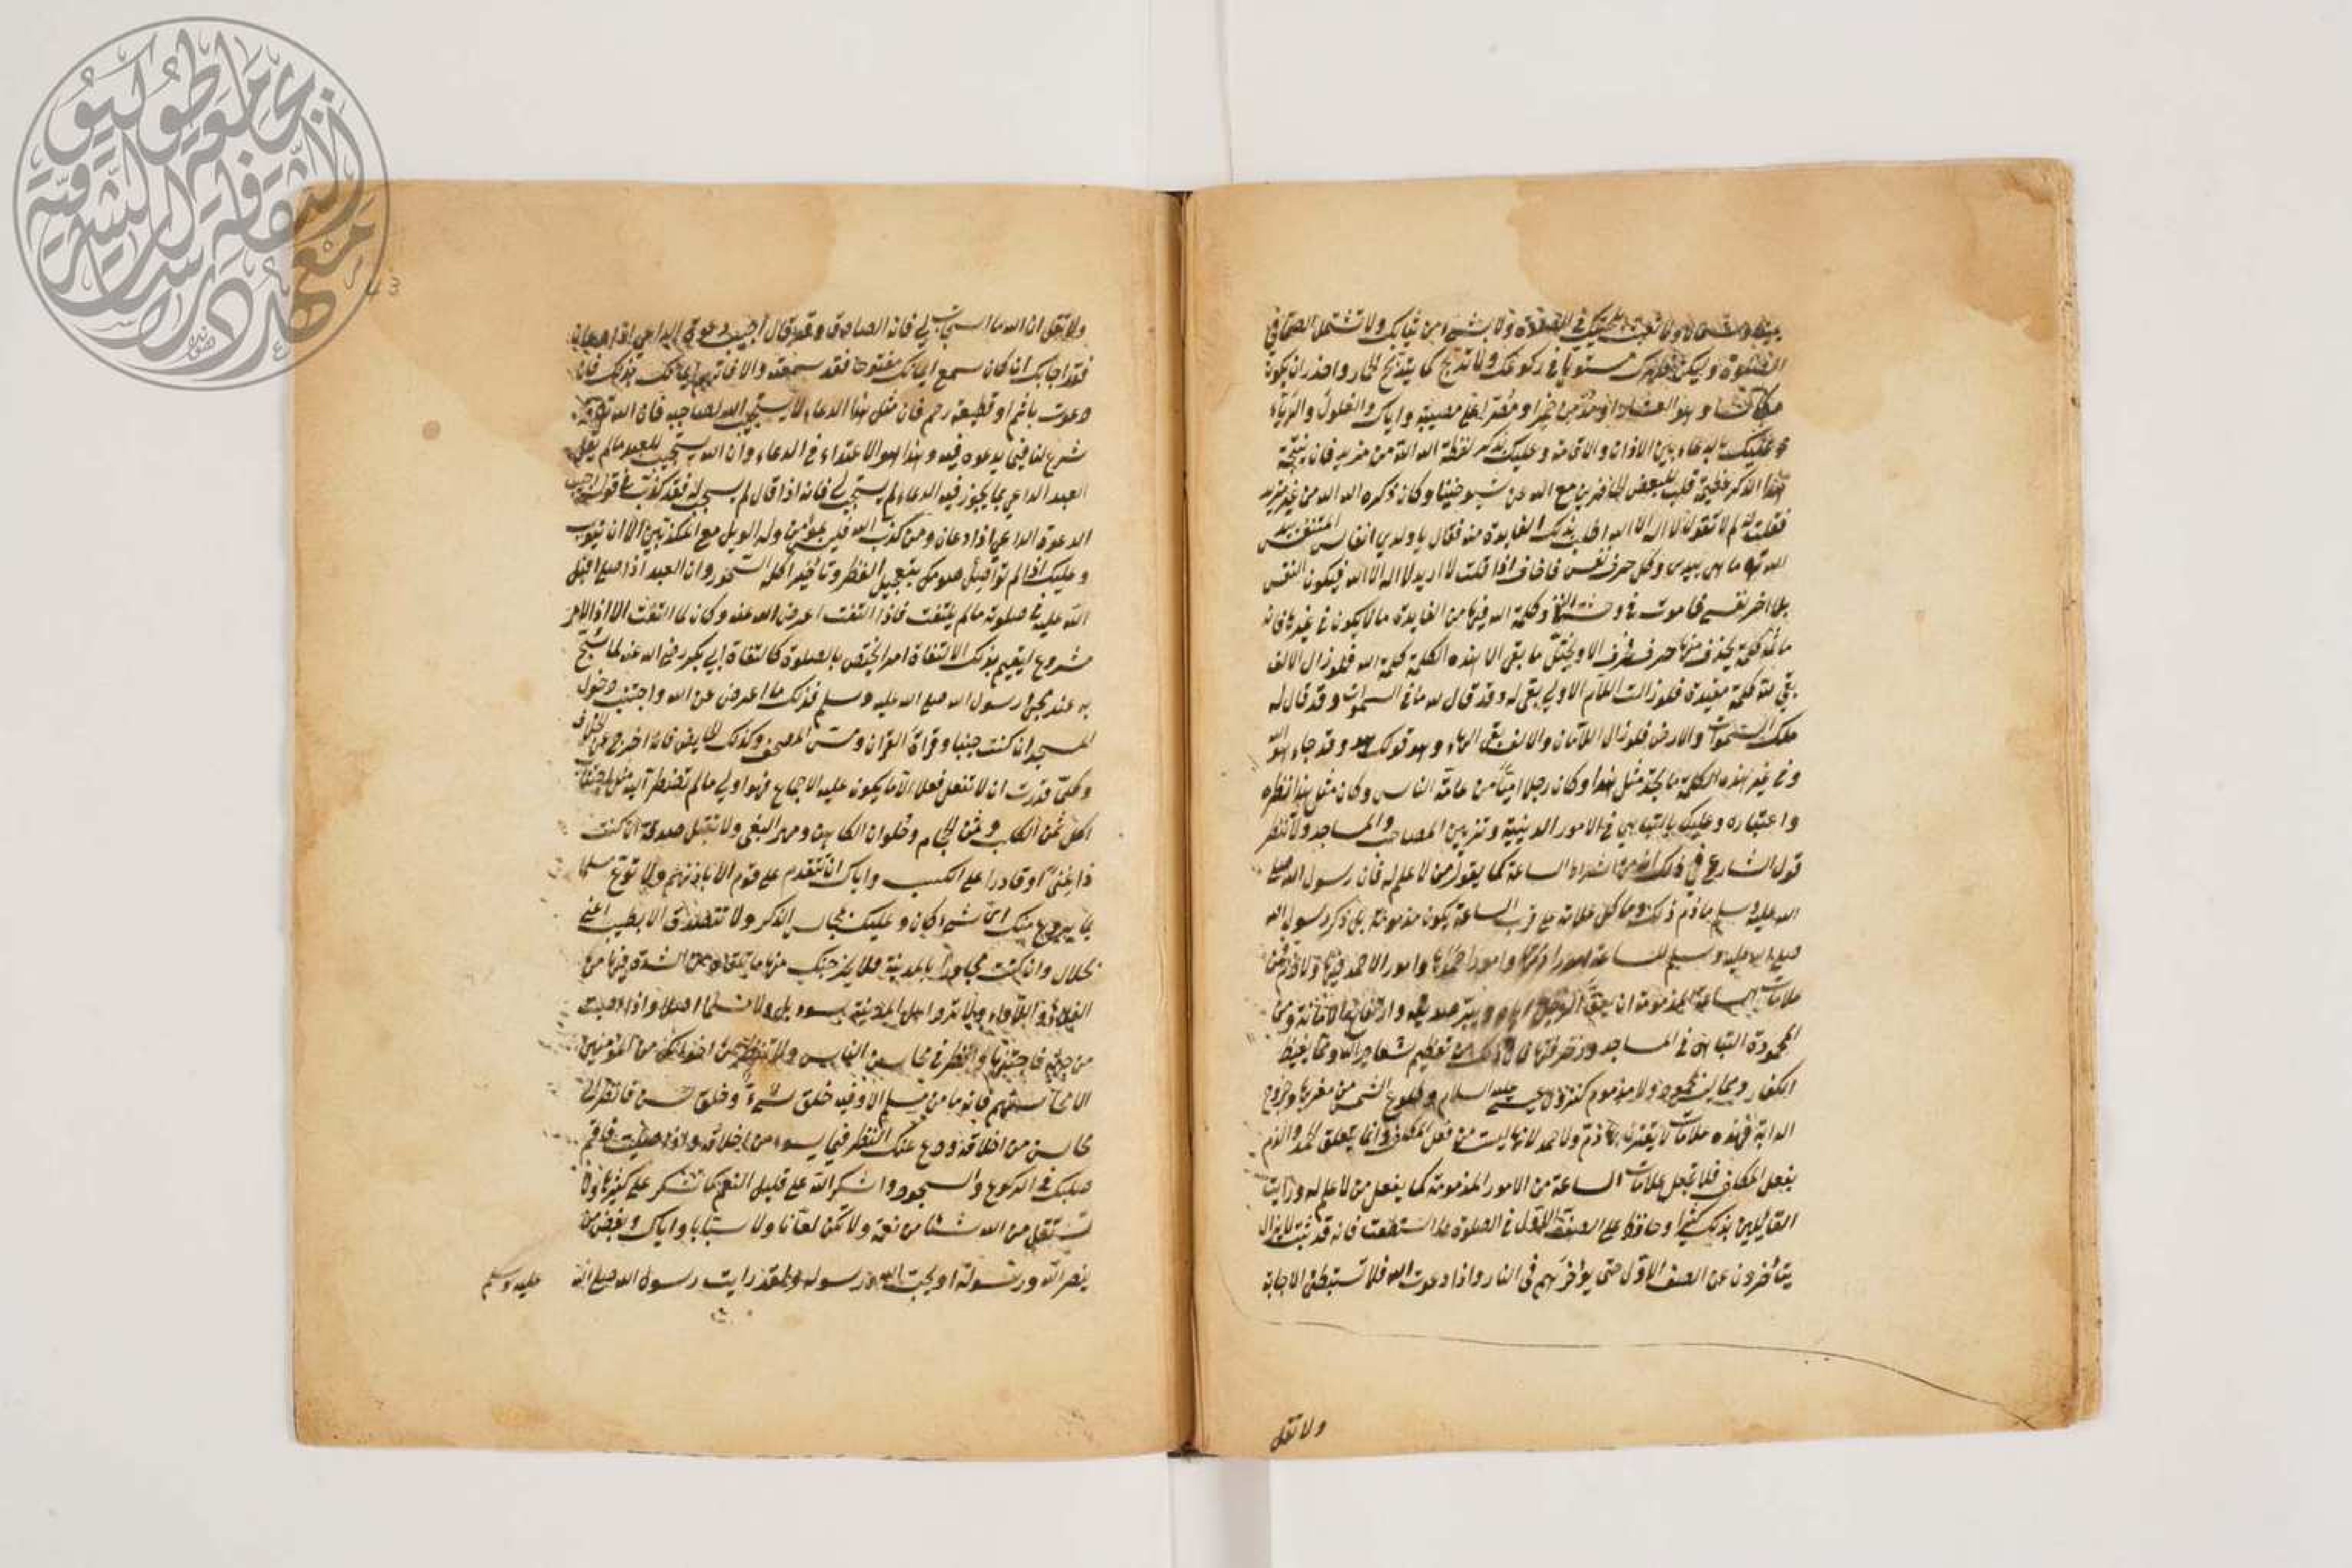 ولا تعبث بلحيتك في الصلوة ولا بشيء من ثيابك ولا تشتمل الصماء في
الصلوة وليكن ظهرك مستويا في ركوعك ولا تدبح كما يدبح الحمار واحذر ان تكون
مكاسا وهو العشار او مدمن خمر او مصرا على معصية واياك والغلول والرياء
وعليك بالدعاء بين الاذان والاقامة وعليك بذكر لفظة الله الله من غير مزيد فان نتيجة
هذا الذكر عظيمة قلت لبعض الحاضرين مع الله من شيوخنا وكان ذكره الله الله من غير مزيد
فقلت له لم لا تقول لا اله الا الله اطلب بذلك الفايدة منه فقال يا ولدي انفاس المتنفس بيد
الله ما هي بيدي وكل حرف نفس فاخاف اذا قلت لا اريد لا اله الا الله فيكون النفس
بلا اخر نفسي فاموت في وحشة النفي وكلمة الله فيها من الفايدة ما لا يكون في غيرها فانه
ما ثم كلمة يحذف منها حرف فحرف الا ويختل ما بقي الا هذه الكلمة كلمة الله فلو زال الالف
بقي لله كلمة مفيدة فلو زالت اللام الاولي بقي له وقد قال لله ما في السموات وقد قال له
ملك السموات والارض فلو زال اللامان والالف بقي الهاء وهو قولك هو وقد جاء هو الله
وفي غير هذه الكلمة ما يجد مثل هذا وكان رجلا اميا من عامة الناس وكان مثل هذا نظره
واعتباره وعليك بالتباهي في الامور الدينية وتزيين المصاحف والمساجد ولا تنظر
قول الشارع في ذلك انه من اشراط الساعة كما يقول من لا علم له فان رسول الله صلى
الله عليه وسلم ما ذم ذلك وما كل علامة على قرب الساعة يكون مذمومة بل ذكر رسول الله
صلى الله عليه وسلم للساعة امورا ذمها وامورا حمدها وامورا لا حمد فيها ولا ذم فمن
علامات الساعة المذمومة ان يعق الرجل اباه ويبر صديقه وارتفاع الامانة ومن
المحمودة التباهي في المساجد وزخرفتها فان ذلك من تعظيم شعاير الله ومما يغيظ
الكفار ومما ليس بمحمود ولا مذموم كنزول عيسى عليه السلام وطلوع الشمس من مغربها وخروج
الدابة فهذه علامات لا يقترن بها ذم ولا حمد لانها ليست من فعل المكلف وانما يتعلق الحمد والذم
بفعل المكلف فلا تجعل علامات الساعة من الامور المذمومة كما يفعل من لا علم له ورايت
القايلين بذلك كثيرا وحافظ على الصف الاول في الصلوة ما استطعت فانه قد ثبت لا يزال
يتأخرون عن الصف الاول حتى يؤخرهم في النار واذا دعوت الله فلا تستبطئ الاجابة
ولا تقل
ولا تقل ان الله ما استجاب لي فانه الصادق وقد قال اجيب دعوة الداعي اذا دعان
فقد اجابك ان كان سمع ايمانك مفتوحا فقد سمعته والا فاتهم ايمانك بذلك فان
دعوت باثم او قطيعة رحم فان مثل هذا الدعاء لا يستجيب الله لصاحبه فان الله
شرع لنا فيما يدعوه فيه وهذا هو الاعتداء في الدعاء وان الله يستجيب للعبد ما لم يقل
العبد الداعي بما يجوز فيه الدعاء لم يستجب لي فانه اذا قال لم يستجب له فقد كذب في قوله اجيب
الدعوة الداعي اذا دعان ومن كذب الله فليس بمؤمن وله الويل مع المكذبين الا ان يتوب
وعليك اذا لم تواصل صومك بتعجيل الفطر وتاخير اكلة السحور وان العبد اذا صلى اقبل
الله عليه في صلوته ما لم يلتفت فاذا التفت اعرض الله عنه وكان لما التفت الا اذا لامر
مشروع ليقيم بذلك الالتفاة امرا يختص بالصلوة كالتفاة ابي بكر رضي الله عنه لما سبح
به عند مجئ رسول الله صلى الله عليه وسلم فذلك ما اعرض عن الله واجتنب دخول
المسجد ان كنت جنبا وقراة القران ومس المصحف وكذلك الحايض فانه اخرج عن الخلاف
وكلما قدرت ان لا تفعل فعلا الا ما يكون عليه الاجماع فهو اولي ما لم تضطر اليه مثل اجتناب
اكل ثمن الكلب وثمن الحجام وحلوان الكاهن ومهر البغي ولا تقبل صدقة ان كنت
ذا غنى او قادرا على الكسب واياك ان تتقدم على قوم الا باذنهم ولا تروع مسلما
بما يروع منك اي شيء كان وعليك بمجالس الذكر ولا تتصدق الا بطيب اعني
بحلال وان كنت مجاورا بالمدينة فلا يخرجنك منها ما يلقاك من الشدة فيها من
الغلاء واللأواء ولا ترد اهل المدينة بسوء بل ولا مسلما اصلا واذا
من جهة فاجتنبها وانظر في محاسن الناس ولا تنظر من اخوانك من المؤمنين
الا محاسنهم فانه ما من مسلم الا وفيه خلق سيء وخلق حسن فانظر الى
محاسن من اخلاقه ودع عنك النظر فيما يسوء من اخلاقه واذا صليت فاقم
صلبك في الركوع والسجود واشكر الله على قليل النعم كما تشكر على كثيرها ولا
تستقل من الله شيئا من نعمه ولا تكن لعانا ولا سبابا واياك وبغض من
ينصر الله ورسوله او يحب الله ورسوله ولقد رايت رسول الله صلى الله
عليه وسلم